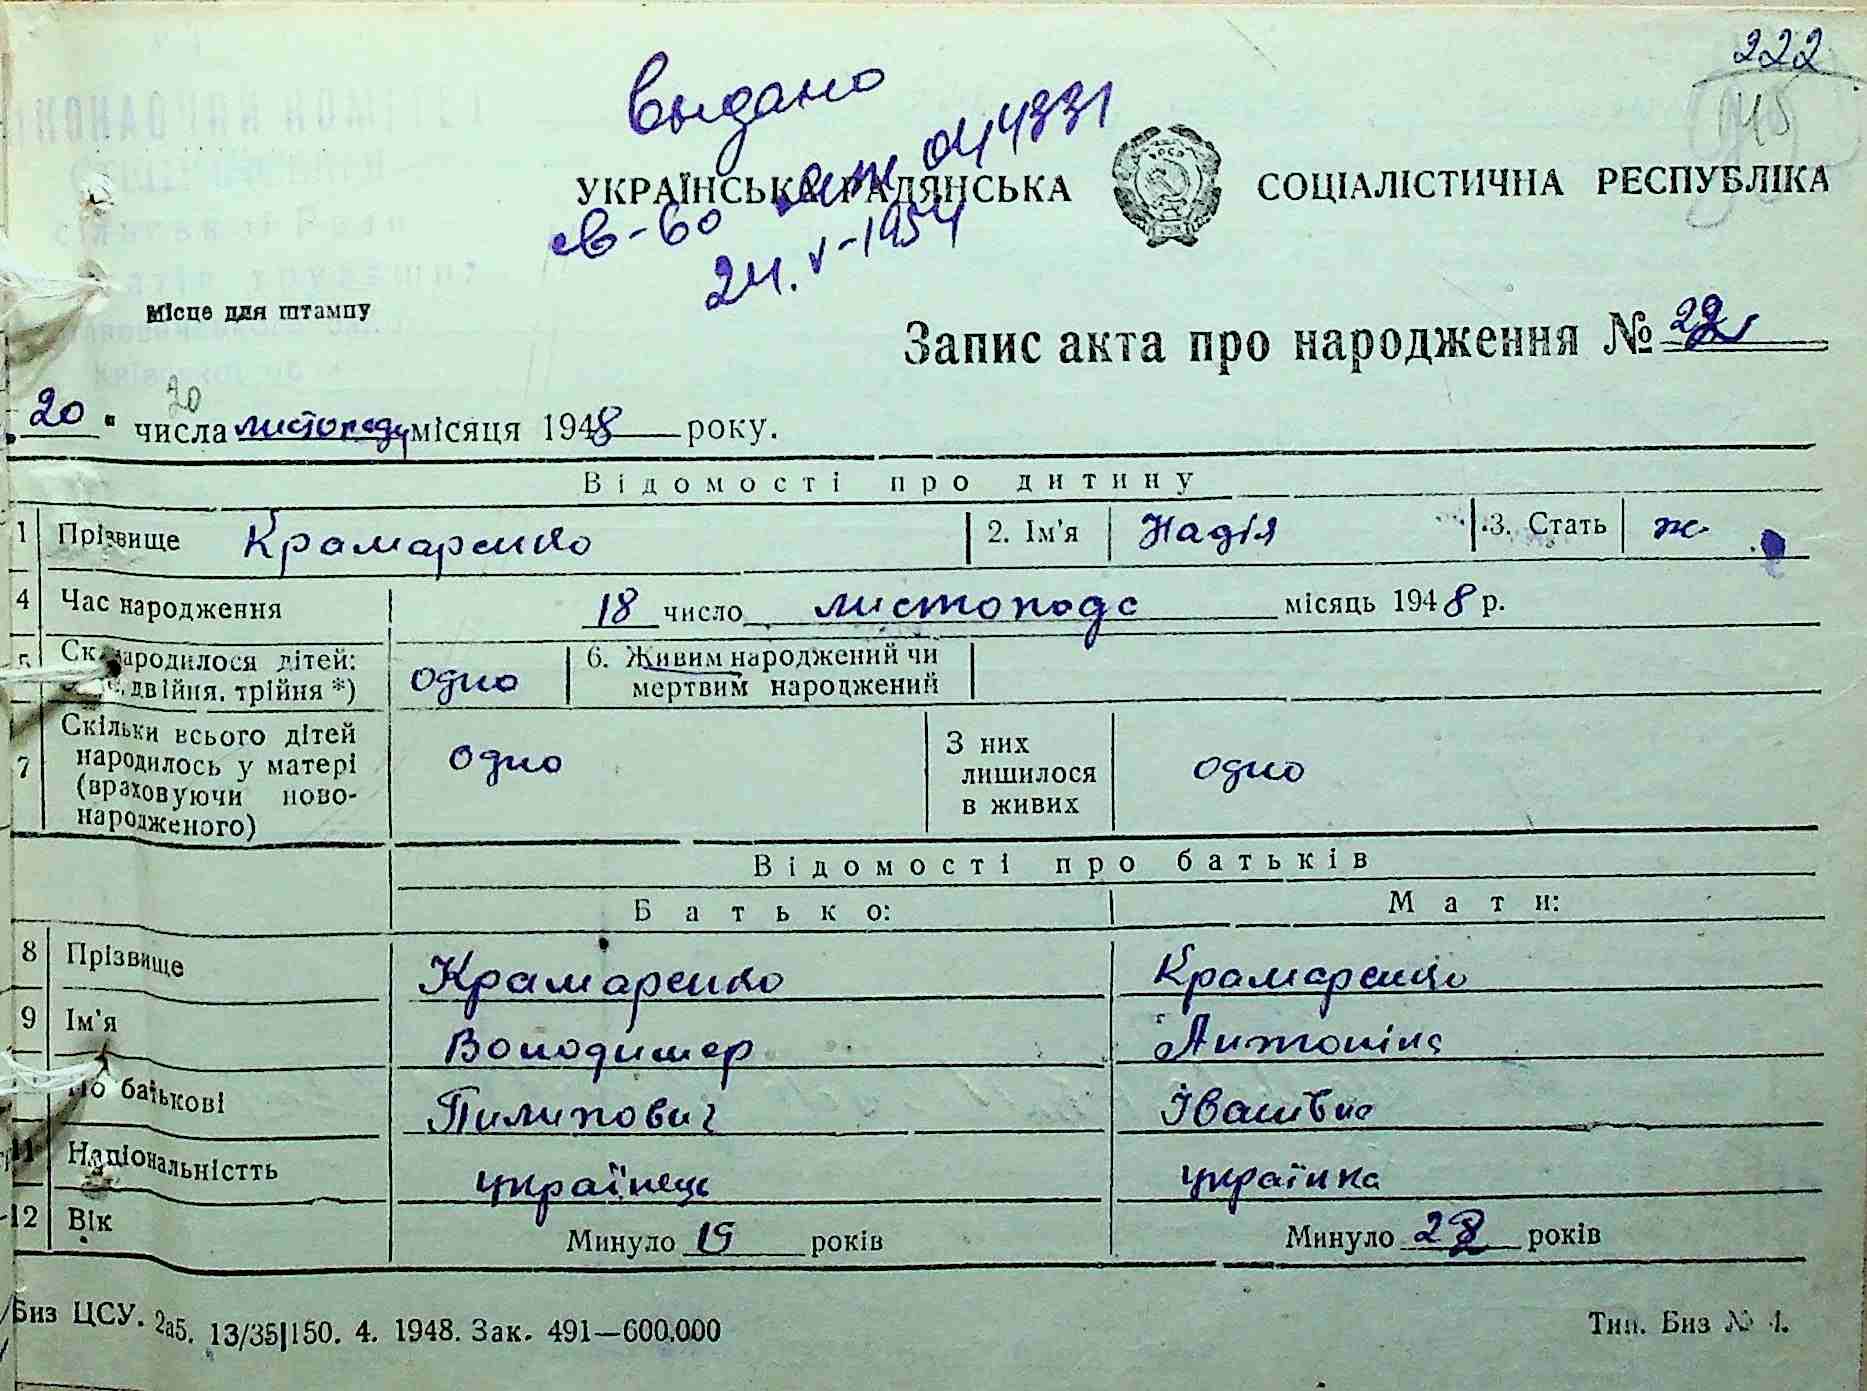 222
выдано
св-во 044331
УКРАЇНСЬКА РАДЯНСЬКА СОЦІАЛІСТИЧНА РЕСПУБЛІКА
24.V-1954
Місце для штампу
Запис акта про народження № 22
20 " числа листопаду місяця 1948 року.
20
Відомості про дитину
1 Прізвище Крамаренко 2. Ім'я Надія 3. Стать ж.
4 Час народження 18 число листопада місяць 1948 р.
5 народилося дітей: двійня, трійня *) одно 6. Живим народжений чи мертвим народжений
7 Скільки всього дітей народилось у матері (враховуючи ново-народженого) одно З них лишилося в живих одно
Відомості про батьків
Батько: Мати:
8 Прізвище Крамаренко Крамаренко
9 Ім'я Володимер Антоніна
По батькові Пилипович Іванівна
11 Національністть українець українка
12 Вік Минуло 19 років Минуло 28 років
Биз ЦСУ. 2а5. 13/35|150. 4. 1948. Зак. 491—600.000 Тип. Биз № 4.